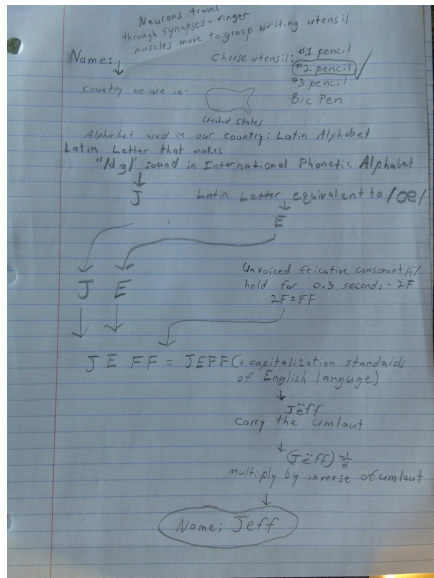 Neurons travel
through synapses - finger
muscles move to grasp writing utensil
Name:
Choose utensil: #1 pencil
#2 pencil
#3 pencil
Bic Pen
Country we are in:
United States
Alphabet used in our country: Latin Alphabet
Latin Letter that makes
"/dʒ/" sound in International Phonetic Alphabet
J
Latin Letter equivalent to /oe/
E
J E
Unvoiced fricative consonant
hold for 0.3 seconds - 2F
2F = FF
J E FF = JEFF ( capitalization standards
of English languge)
Jëff
Carry the umlaut
(Jëff)
multiply by inverse of umlaut
Name; Jeff